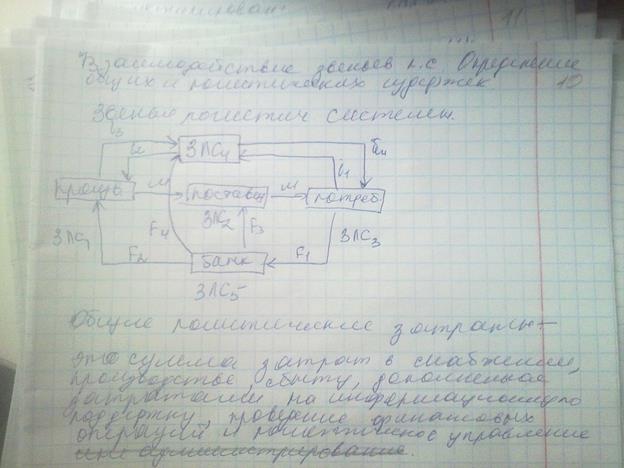 Взаимодействие звеньев л.с. Определение
общих логистических издержек 10
Звенья логистич системы.
ЗЛС4
i3 i2 i1 i4
произв. М постав М потреб.
ЗЛС1 ЗЛС2 ЗЛС3
F4 F3
F2 банк F1
ЗЛС5
Общие логистические затраты –
это сумма затрат в снабжении,
производстве, сбыту, дополненная
затратами на информационную
поддержку, проведение финансовых
операций и логистическое управление
администрирование.